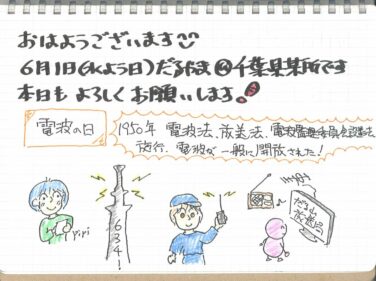 おはようございます
6月1日(水よう日)だるやま@千葉県某所です
本日もよろしくお願いします。
電波の日
1950年 電波法、放送法、電波監理委員会設置法
施行、電波が一般に開放された!
ピピ
634!
だるやま
放送局